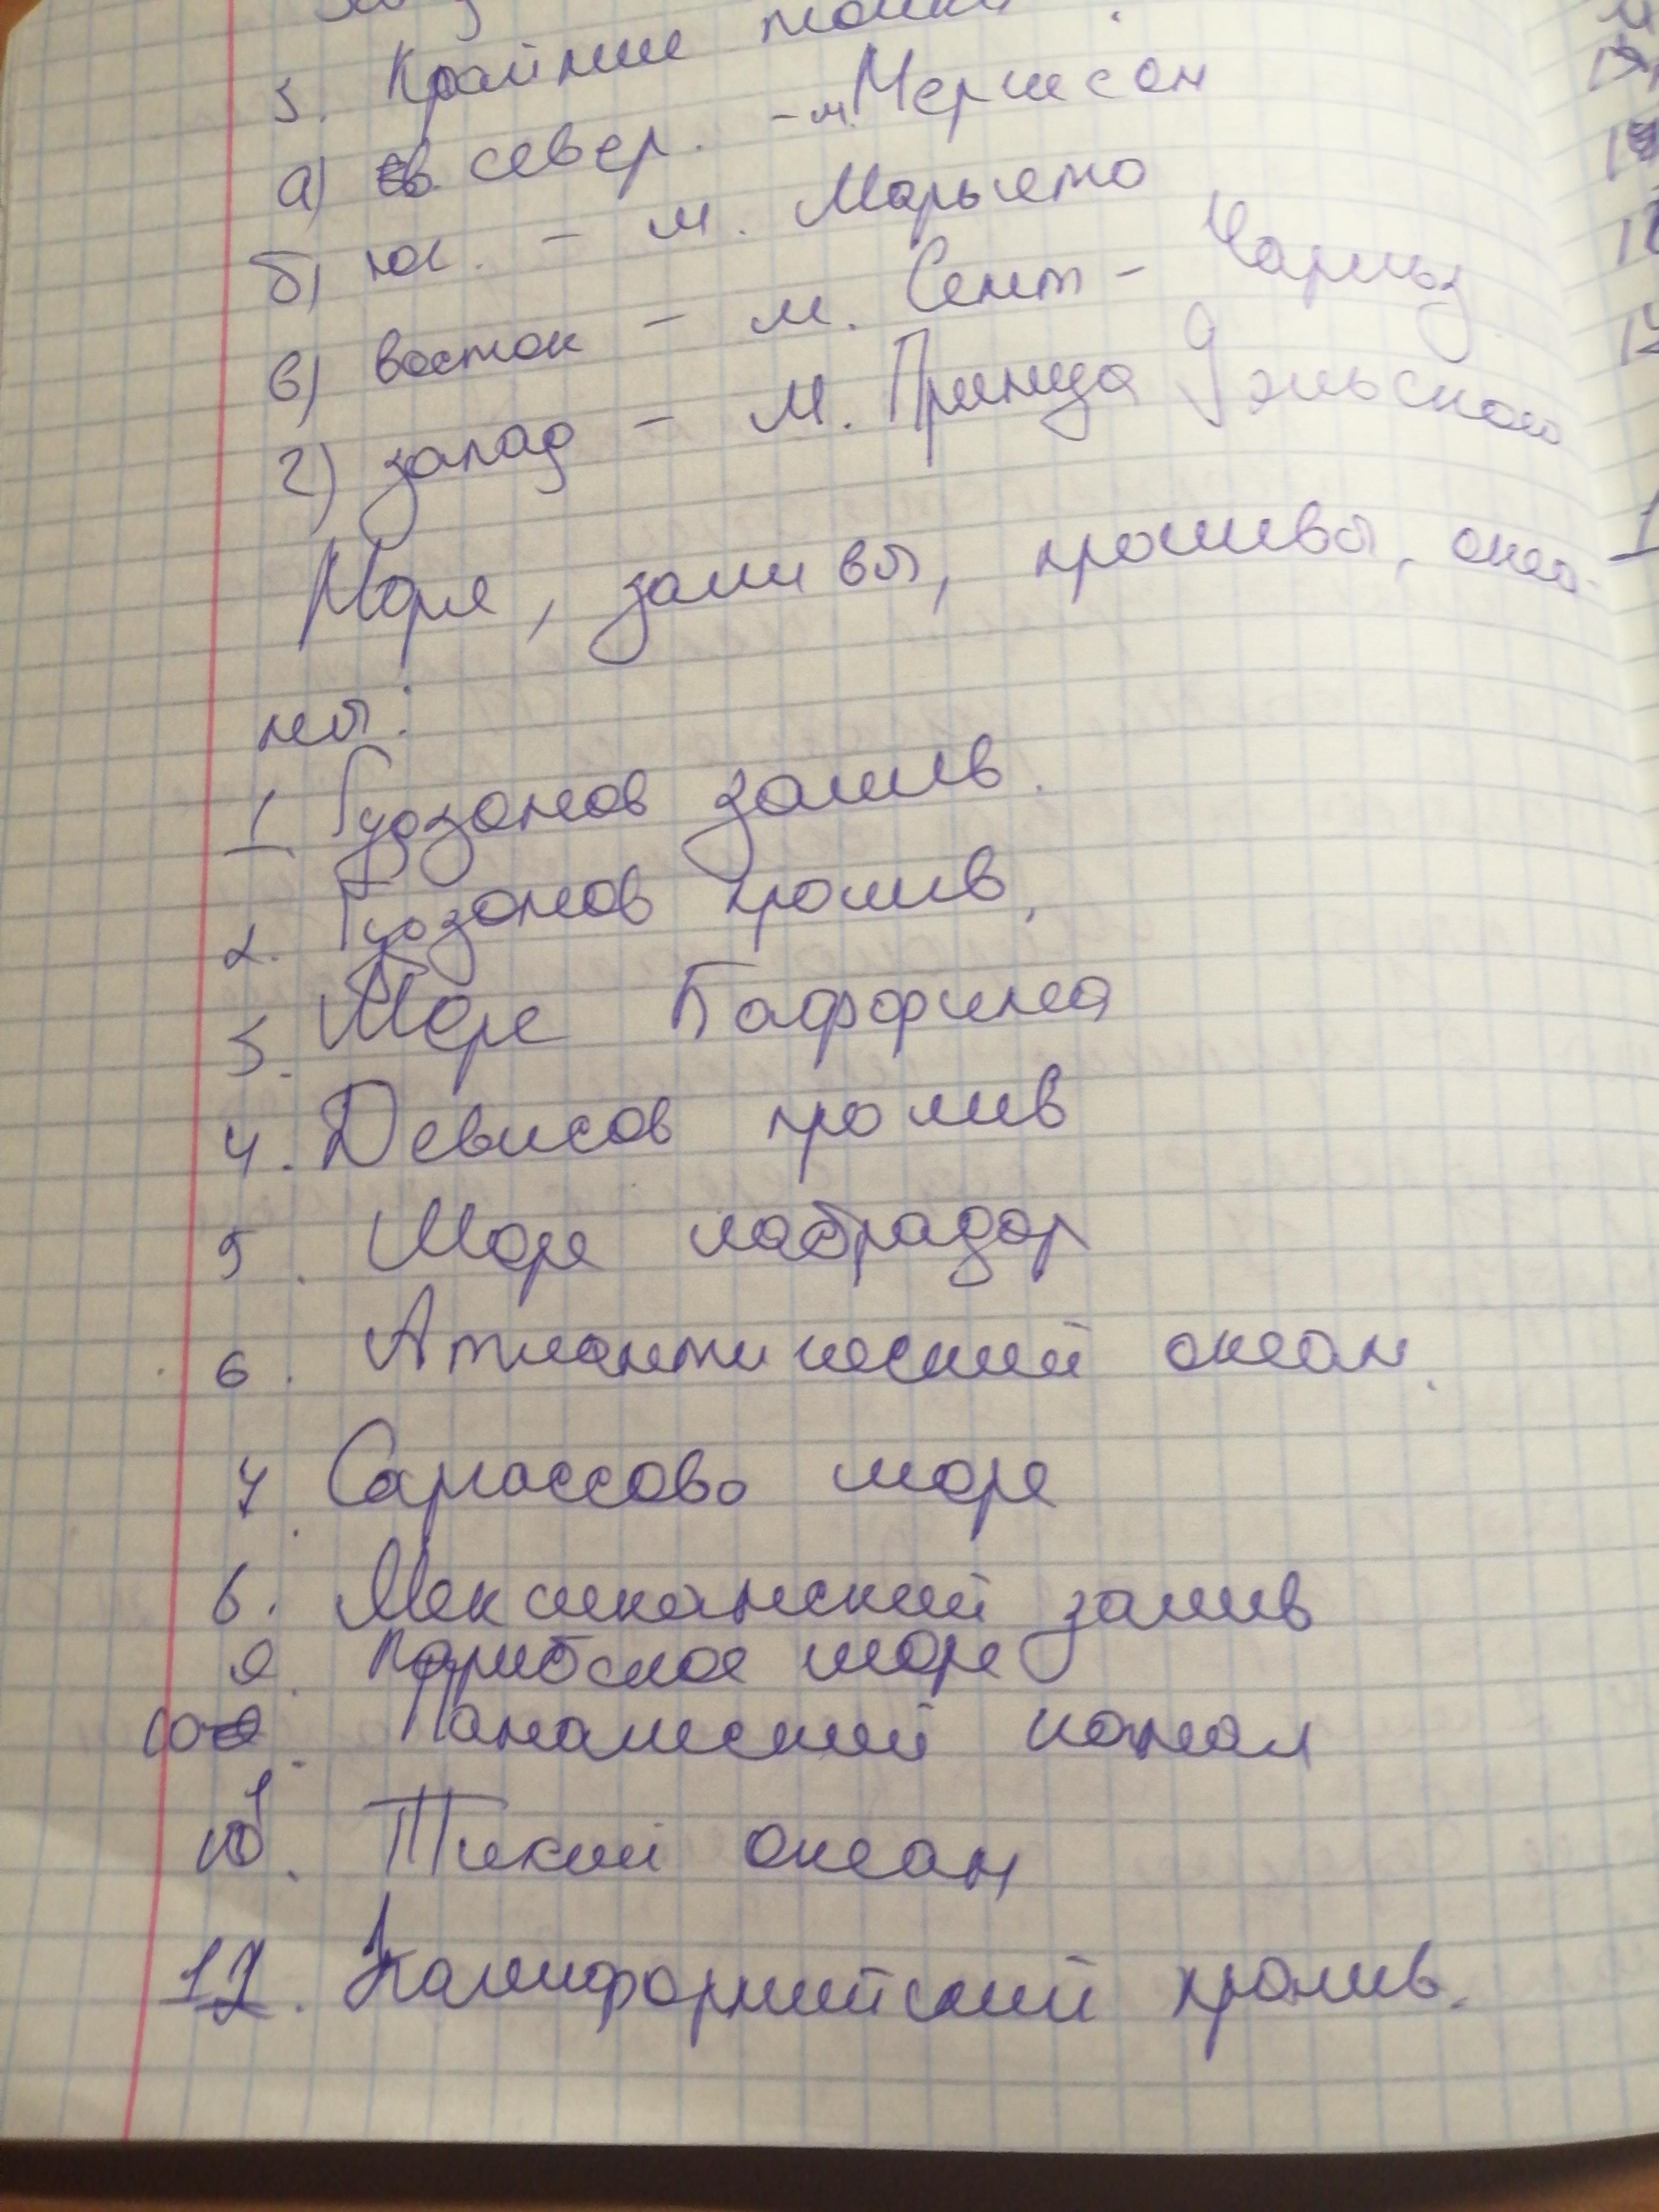 3. Крайние точки:
а) север. - м. Мерчисон
б) юж. - м. Марьято
в) восток - м. Сент - Чарльз
г) запад - м. Принца Уэльского
Моря, заливы, проливы, океа-
ны:
1 Гудзонов залив.
2. Гудзонов пролив,
3. Море Баффина
4. Девисов пролив
5. Море лабрадор
6. Атлантический океан.
7. Саргассово море
8. Мексиканский залив
9. Карибское море
10. Панамский канал
11. Тихий океан
12. Калифорнийский пролив.